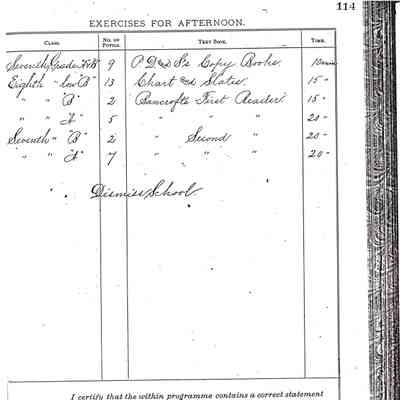 114
EXERCISES FOR AFTERNOON.
CLASS. NO. OF PUPILS. TEXT BOOK. TIME.
Seventh Grade A&B 9 P. D. & S's Copy Books. 10 min
Eighth " low "B" 13 Chart and Slates. 15 "
" " "B" 2 Bancroft's First Reader. 15 "
" " "A" 5 " " " 20 "
Seventh " "B" 2 " Second " 20 "
" " "A" 7 " " " 20 "
Dismiss School.
I certify that the within programme contains a correct statement